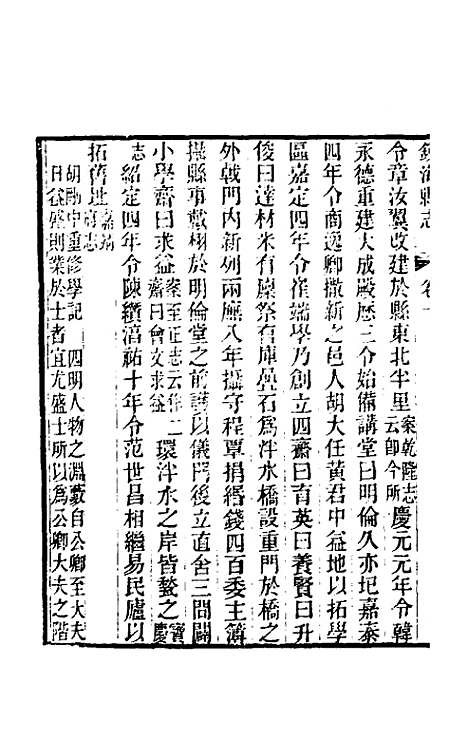 鎮海縣志
卷十
令章汝翼改建於縣東北半里案乾隆志云卽今所慶元元年令韓
永德重建大成殿歷三令始備講堂曰明倫久亦圮嘉泰
四年令商逸卿撤新之邑人胡大任黃君中益地以拓學
區嘉定四年令崔端學乃創立四齋曰育英曰養賢曰升
俊曰達材米有廩祭有庫甃石爲泮水橋設重門於橋之
外戟門內新列兩廡八年攝守程覃捐緡錢四百委主簿
攝縣事戴栩於明倫堂之前闢以儀門後立直舍三間闢
小學齋曰求益案至正志云作二齋曰會文求益環泮水之岸皆甃之寶慶
志紹定四年令陳纘淳祐十年令范世昌相繼易民廬以
拓舊址嘉靖府志
胡助中重修學記 四明人物之淵藪自公卿至大夫
日益盛則業於士者宜尤盛士所以爲公卿大夫之階